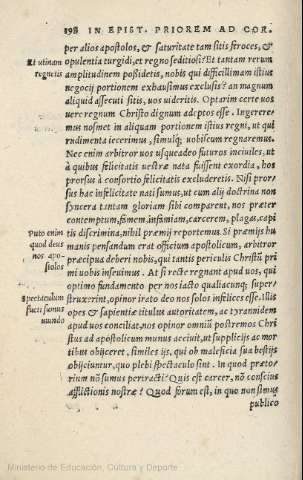 198 IN EPIST. PRIOREM AD COR.
per alios apostolos, & saturitate tam sitis feroces, &
Et utinam opulentia turgidi, et regno seditiosi? Et tantam rerum
regnetis amplitudinem possidetis, nobis qui difficillimam istius
negocij portionem exhausimus exclusis? an magnum
aliquid assecuti sitis, uos uideritis. Optarim certe uos
uere regnum Christo dignum adeptos esse. Ingerere-
mus nosmet in aliquam portionem istius regni, ut qui
rudimenta iecerimus, simulq; uobiscum regnaremus.
Nec enim arbitror uos usqueadeo futuros inciuiles, ut
à quibus felicitatis uestræ nata fuissent exordia, hos
prorsus à consortio felicitatis excluderetis. Nisi pror-
sus hac infelicitate nati sumus, ut cum alij doctrina non
syncera tantam gloriam sibi comparent, nos præter
contemptum, famem, infamiam, carcerem, plagas, capi
Puto enim tis discrimina, nihil præmij reportemus. Si præmijs hu
quod deus manis pensandum erat officium apostolicum, arbitror
nos apo- præcipua deberi nobis, qui tantis periculis Christū pri
stolos mi uobis inseuimus. At si recte regnant apud uos, qui
optimo fundamento per nos iacto qualiacunq; super
Spectaculum struxerint, opinor irato deo nos solos infelices esse. Illis
facti sumus opes & sapientiæ titulus autoritatem, ac tyrannidem
mundo apud uos conciliat, nos opinor omniū postremos Chri
stus ad apostolicum munus acciuit, ut supplicijs ac mor
tibus obijceret, similes ijs, qui ob maleficia sua bestijs
obijciuntur, quo plebi spectaculo sint. In quod præto-
rium nō sumus pertracti? Quis est carcer, nō conscius
afflictionis nostræ? Quod forum est, in quo non simus
publico
Ministerio de Educación, Cultura y Deporte